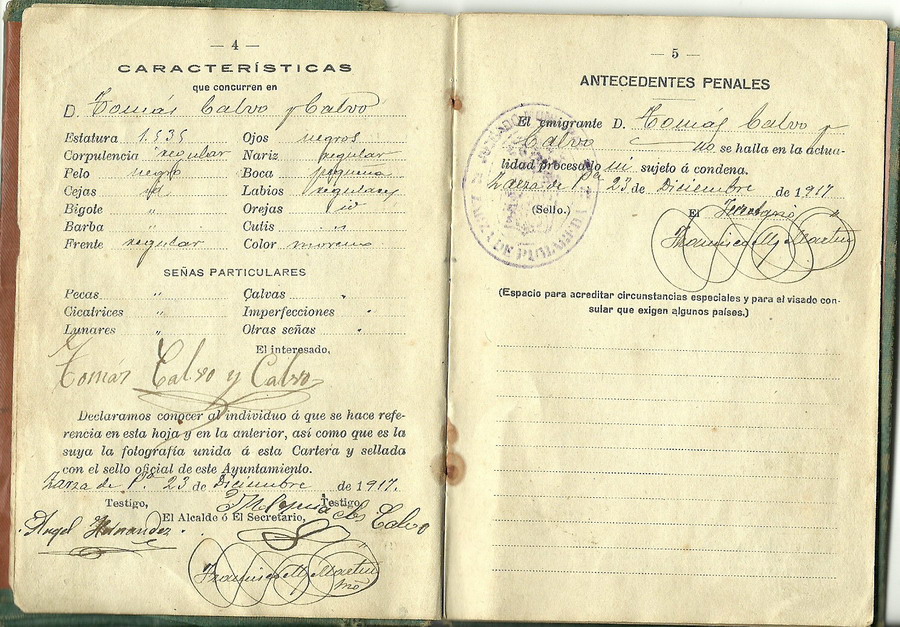 — 4 —
CARACTERÍSTICAS
que concurren en
D. Tomás Calvo y Calvo
Estatura 1.535
Corpulencia regular
Pelo negro
Cejas id
Bigote "
Barba "
Frente regular
Ojos negros
Nariz regular
Boca pequeña
Labios regulares
Orejas id
Cutis "
Color moreno
SEÑAS PARTICULARES
Pecas "
Cicatrices "
Lunares "
Calvas
Imperfecciones
Otras señas
El interesado,
Tomás Calvo y Calvo
Declaramos conocer al individuo á que se hace refe-
rencia en esta hoja y en la anterior, así como que es la
suya la fotografía unida á esta Cartera y sellada
con el sello oficial de este Ayuntamiento.
Zarza de P.ª 23 de Diciembre de 1917.
Testigo, Testigo,
Angel Hernandez Calvo
El Alcalde ó El Secretario,
Francisco M Martin
— 5 —
ANTECEDENTES PENALES
El emigrante D. Tomás Calvo y
Calvo no se halla en la actua-
lidad procesado ni sujeto á condena.
Zarza de P.ª 23 de Diciembre de 1917
(Sello.)
JUZGADO MUNICIPAL
ZARZA DE
El Secretario
Francisco M Martin
(Espacio para acreditar circunstancias especiales y para el visado con-
sular que exigen algunos países.)